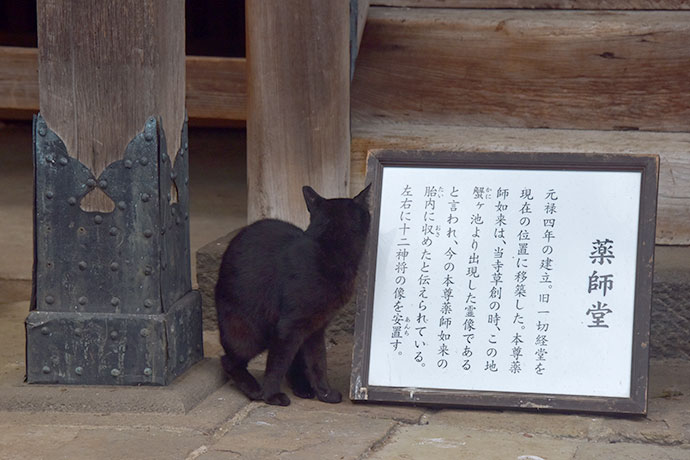 薬師堂
元禄四年の建立。旧一切経堂を
現在の位置に移築した。本尊薬
師如来は、当寺草創の時、この地
蟹ヶ池より出現した霊像である
と言われ、今の本尊薬師如来の
胎内に収めたと伝えられている。
左右に十二神将の像を安置す。